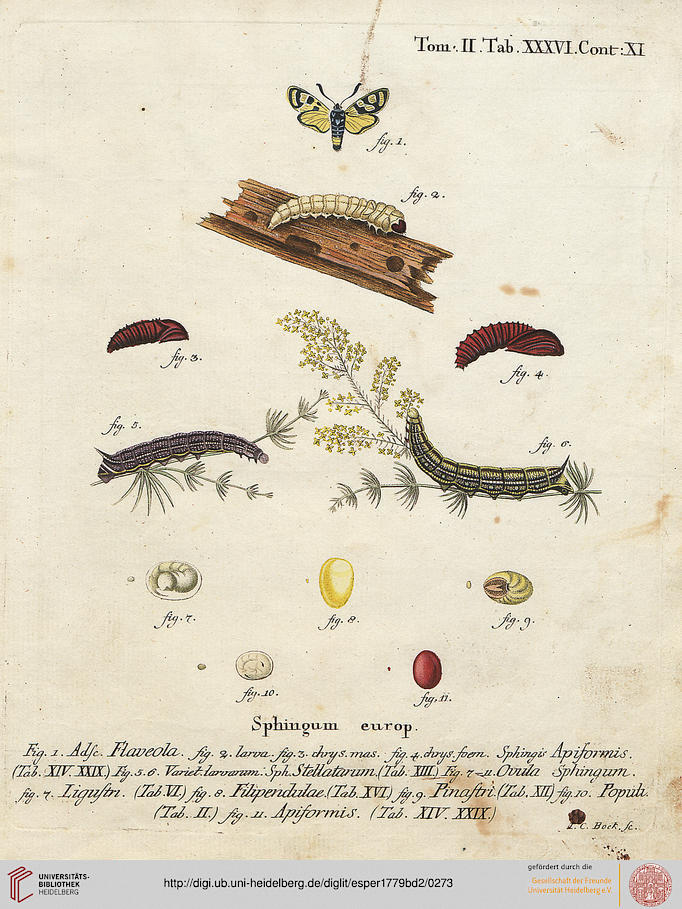 Tom. II. Tab. XXXVI. Cont: XI
fig. 1.
fig. 2.
fig. 3.
fig. 4.
fig. 5.
fig. 6.
fig. 7.
fig. 8.
fig. 9.
fig. 10.
fig. 11.
Sphingum europ.
Fig. 1. Adſc. Flaveola. fig. 2. larva. fig. 3. chrys. mas. fig. 4. chrys. foem. Sphingis Apiformis.
(Tab. XIV. XXIX.) Fig. 5. 6. Variet. larvarum. Sph. Stellatarum. (Tab. XIII.) Fig. 7-11. Ovula Sphingum.
fig. 7. Ligustri. (Tab. VI.) fig. 8. Filipendulae. (Tab. XVI.) fig. 9. Pinastri. (Tab. XII.) fig. 10. Populi.
(Tab. II.) fig. 11. Apiformis. (Tab. XIV. XXIX.)
I. C. Bock. sc.
UNIVERSITÄTS-
BIBLIOTHEK
HEIDELBERG
http://digi.ub.uni-heidelberg.de/diglit/esper1779bd2/0273
gefördert durch die
Gesellschaft der Freunde
Universität Heidelberg e.V.